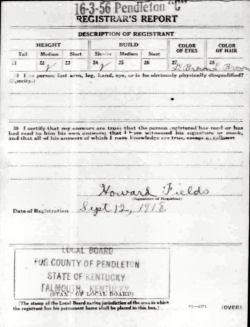 16-3-56 Pendleton "C"
REGISTRAR'S REPORT
DESCRIPTION OF REGISTRANT
HEIGHT BUILD COLOR OF EYES COLOR OF HAIR
Tall Medium Short Slender Medium Stout
21 22 23 24 25 26 27 28
29 Has person lost arm, leg, hand, eye, or is he obviously physically disqualified?
(Specify.)
30 I certify that my answers are true; that the person registered has read or has
had read to him his own answers; that I have witnessed his signature or mark,
and that all of his answers of which I have knowledge are true, except as follows:
Howard Fields
(Signature of Registrar)
Date of Registration Sept 12, 1918
LOCAL BOARD
FOR COUNTY OF PENDLETON
STATE OF KENTUCKY
FALMOUTH, KENTUCKY
(STAMP OF LOCAL BOARD)
(The stamp of the Local Board having jurisdiction of the area in which
the registrant has his permanent home shall be placed in this box.)
(OVER)